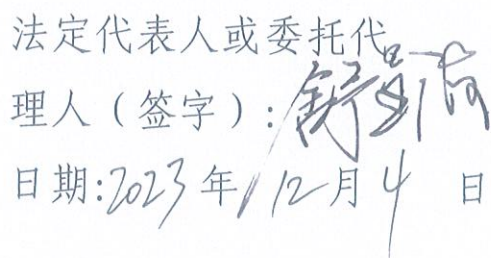 法定代表人或委托代
理人（签字）:舒
日期:2023年12月4日